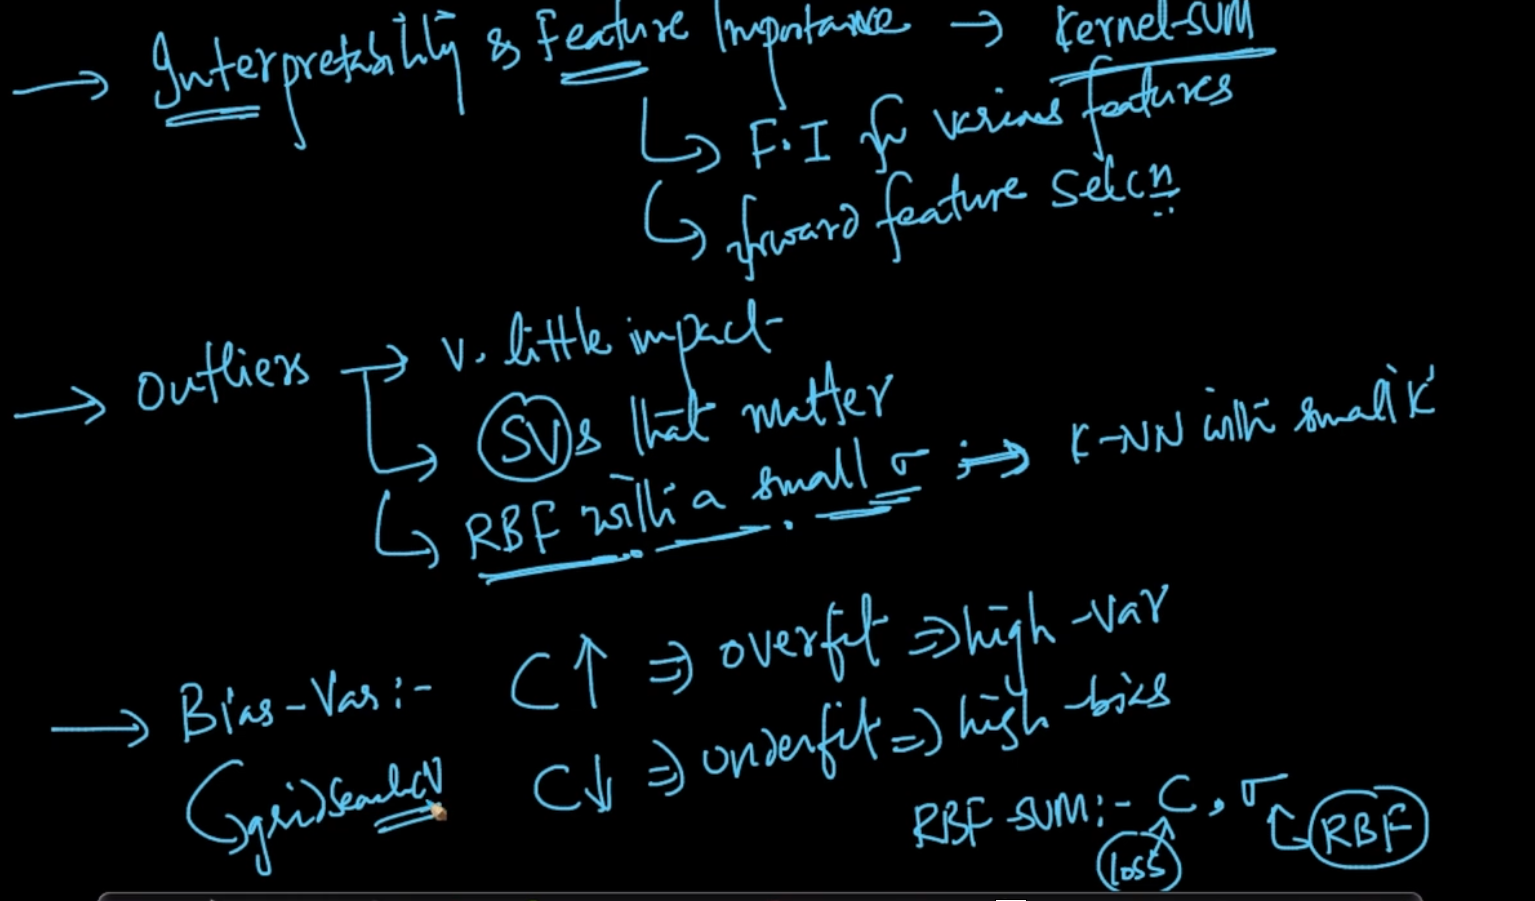 → Interpretability & Feature Importance → Kernel-SVM
↳ F.I for various features
↳ forward feature selcn
→ Outliers → v. little impact
↳ SVs that matter
↳ RBF with a small σ ; → K-NN with small 'K'
→ Bias-Var:- C↑ ⇒ overfit ⇒ high-var
C↓ ⇒ underfit ⇒ high-bias
↳ gridSearchCV
RBF-SVM:- C, σ ↳ RBF
loss